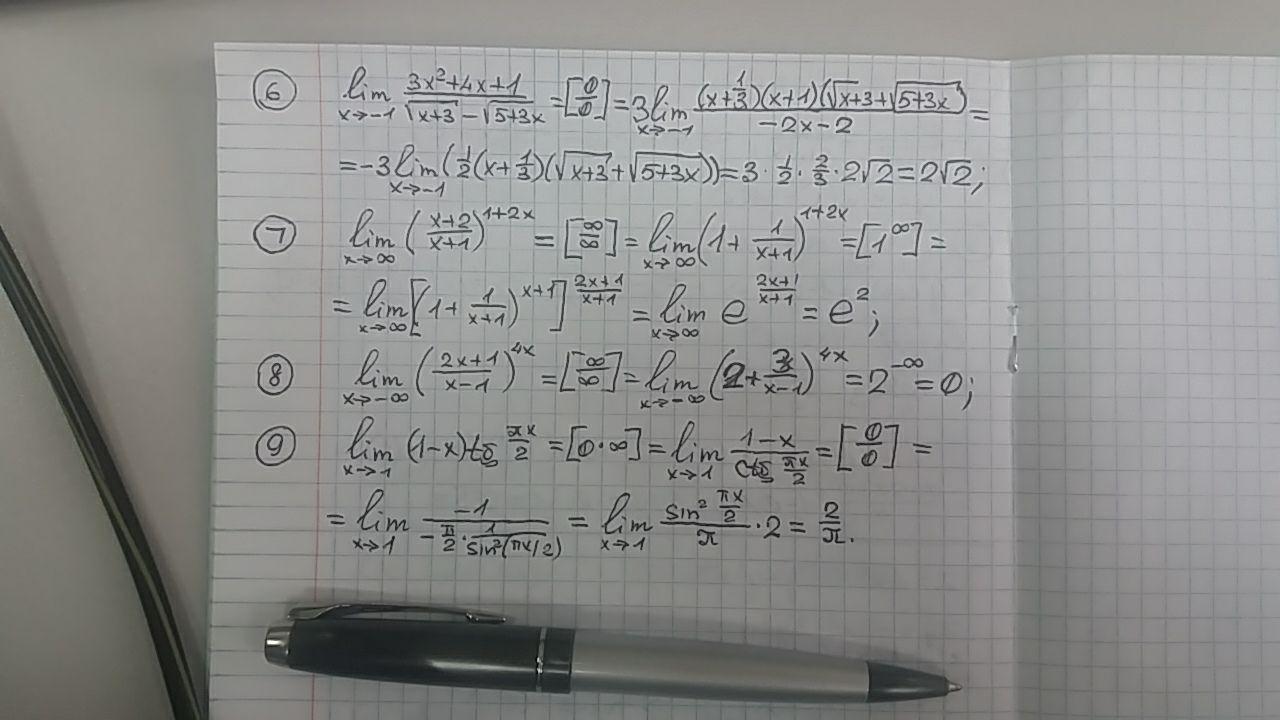 ⑥ lim_{x→-1} (3x²+4x+1)/(√(x+3) - √(5+3x)) = [0/0] = 3 lim_{x→-1} ((x+1/3)(x+1)(√x+3+√(5+3x)))/(-2x-2) =
= -3 lim_{x→-1} (1/2(x+1/3)(√(x+3)+√(5+3x))) = 3 · 1/2 · 2/3 · 2√2 = 2√2;
⑦ lim_{x→∞} ((x+2)/(x+1))^{1+2x} = [∞/∞] = lim_{x→∞} (1+ 1/(x+1))^{1+2x} = [1^∞] =
= lim_{x→∞} [(1+ 1/(x+1))^{x+1}]^{(2x+1)/(x+1)} = lim_{x→∞} e^{(2x+1)/(x+1)} = e²;
⑧ lim_{x→-∞} ((2x+1)/(x-1))^{4x} = [∞/∞] = lim_{x→-∞} (2+ 3/(x-1))^{4x} = 2^{-∞} = 0;
⑨ lim_{x→1} (1-x) tg πx/2 = [0·∞] = lim_{x→1} (1-x)/(ctg πx/2) = [0/0] =
= lim_{x→1} -1/(-π/2 · 1/sin²(πx/2)) = lim_{x→1} (sin² πx/2)/π · 2 = 2/π.